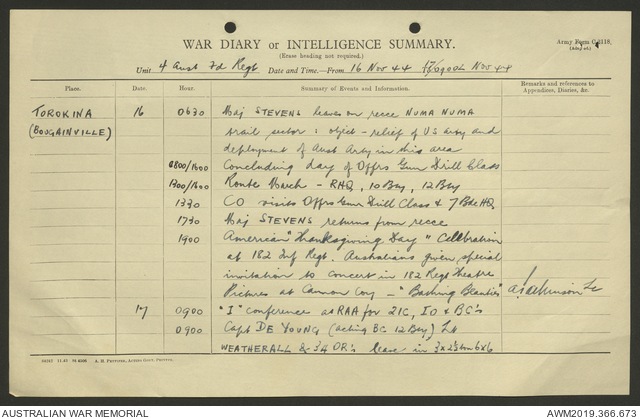 WAR DIARY or INTELLIGENCE SUMMARY.
Army Form C.2118.
(Erase heading not required.)
Unit 4 Aust Fd Regt Date and Time.—From 16 Nov 44 Nov 44
Place. Date. Hour. Summary of Events and Information. Remarks and references to Appendices, Diaries, &c.
TOROKINA 16 0630 Maj STEVENS leaves on recce NUMA NUMA
(BOUGAINVILLE) trail sector: object - relief of US arty and
deployment of Aust Arty in this area
0800/1600 Concluding day of Offrs Gun Drill Class
1300/1600 Route March - RHQ, 10 Bty, 12 Bty
1330 CO visits Offrs Gun Drill Class & 7 Bde HQ
1730 Maj STEVENS returns from recce
1900 American "Thanksgiving Day" Celebration
at 182 Inf Regt. Australians given special
invitation to concert in 182 Regt Theatre
Pictures at Cannon Coy - "Bathing Beauties"
17 0900 "I" conference at RAA for 2IC, IO & BC's
0900 Capt DE YOUNG (acting BC 12 Bty) Lt
WEATHERALL & 34 OR's leave in 3 x 2½ ton 6x6
A. H. PETTIFER, ACTING GOVT. PRINTER.
AUSTRALIAN WAR MEMORIAL
AWM2019.366.673